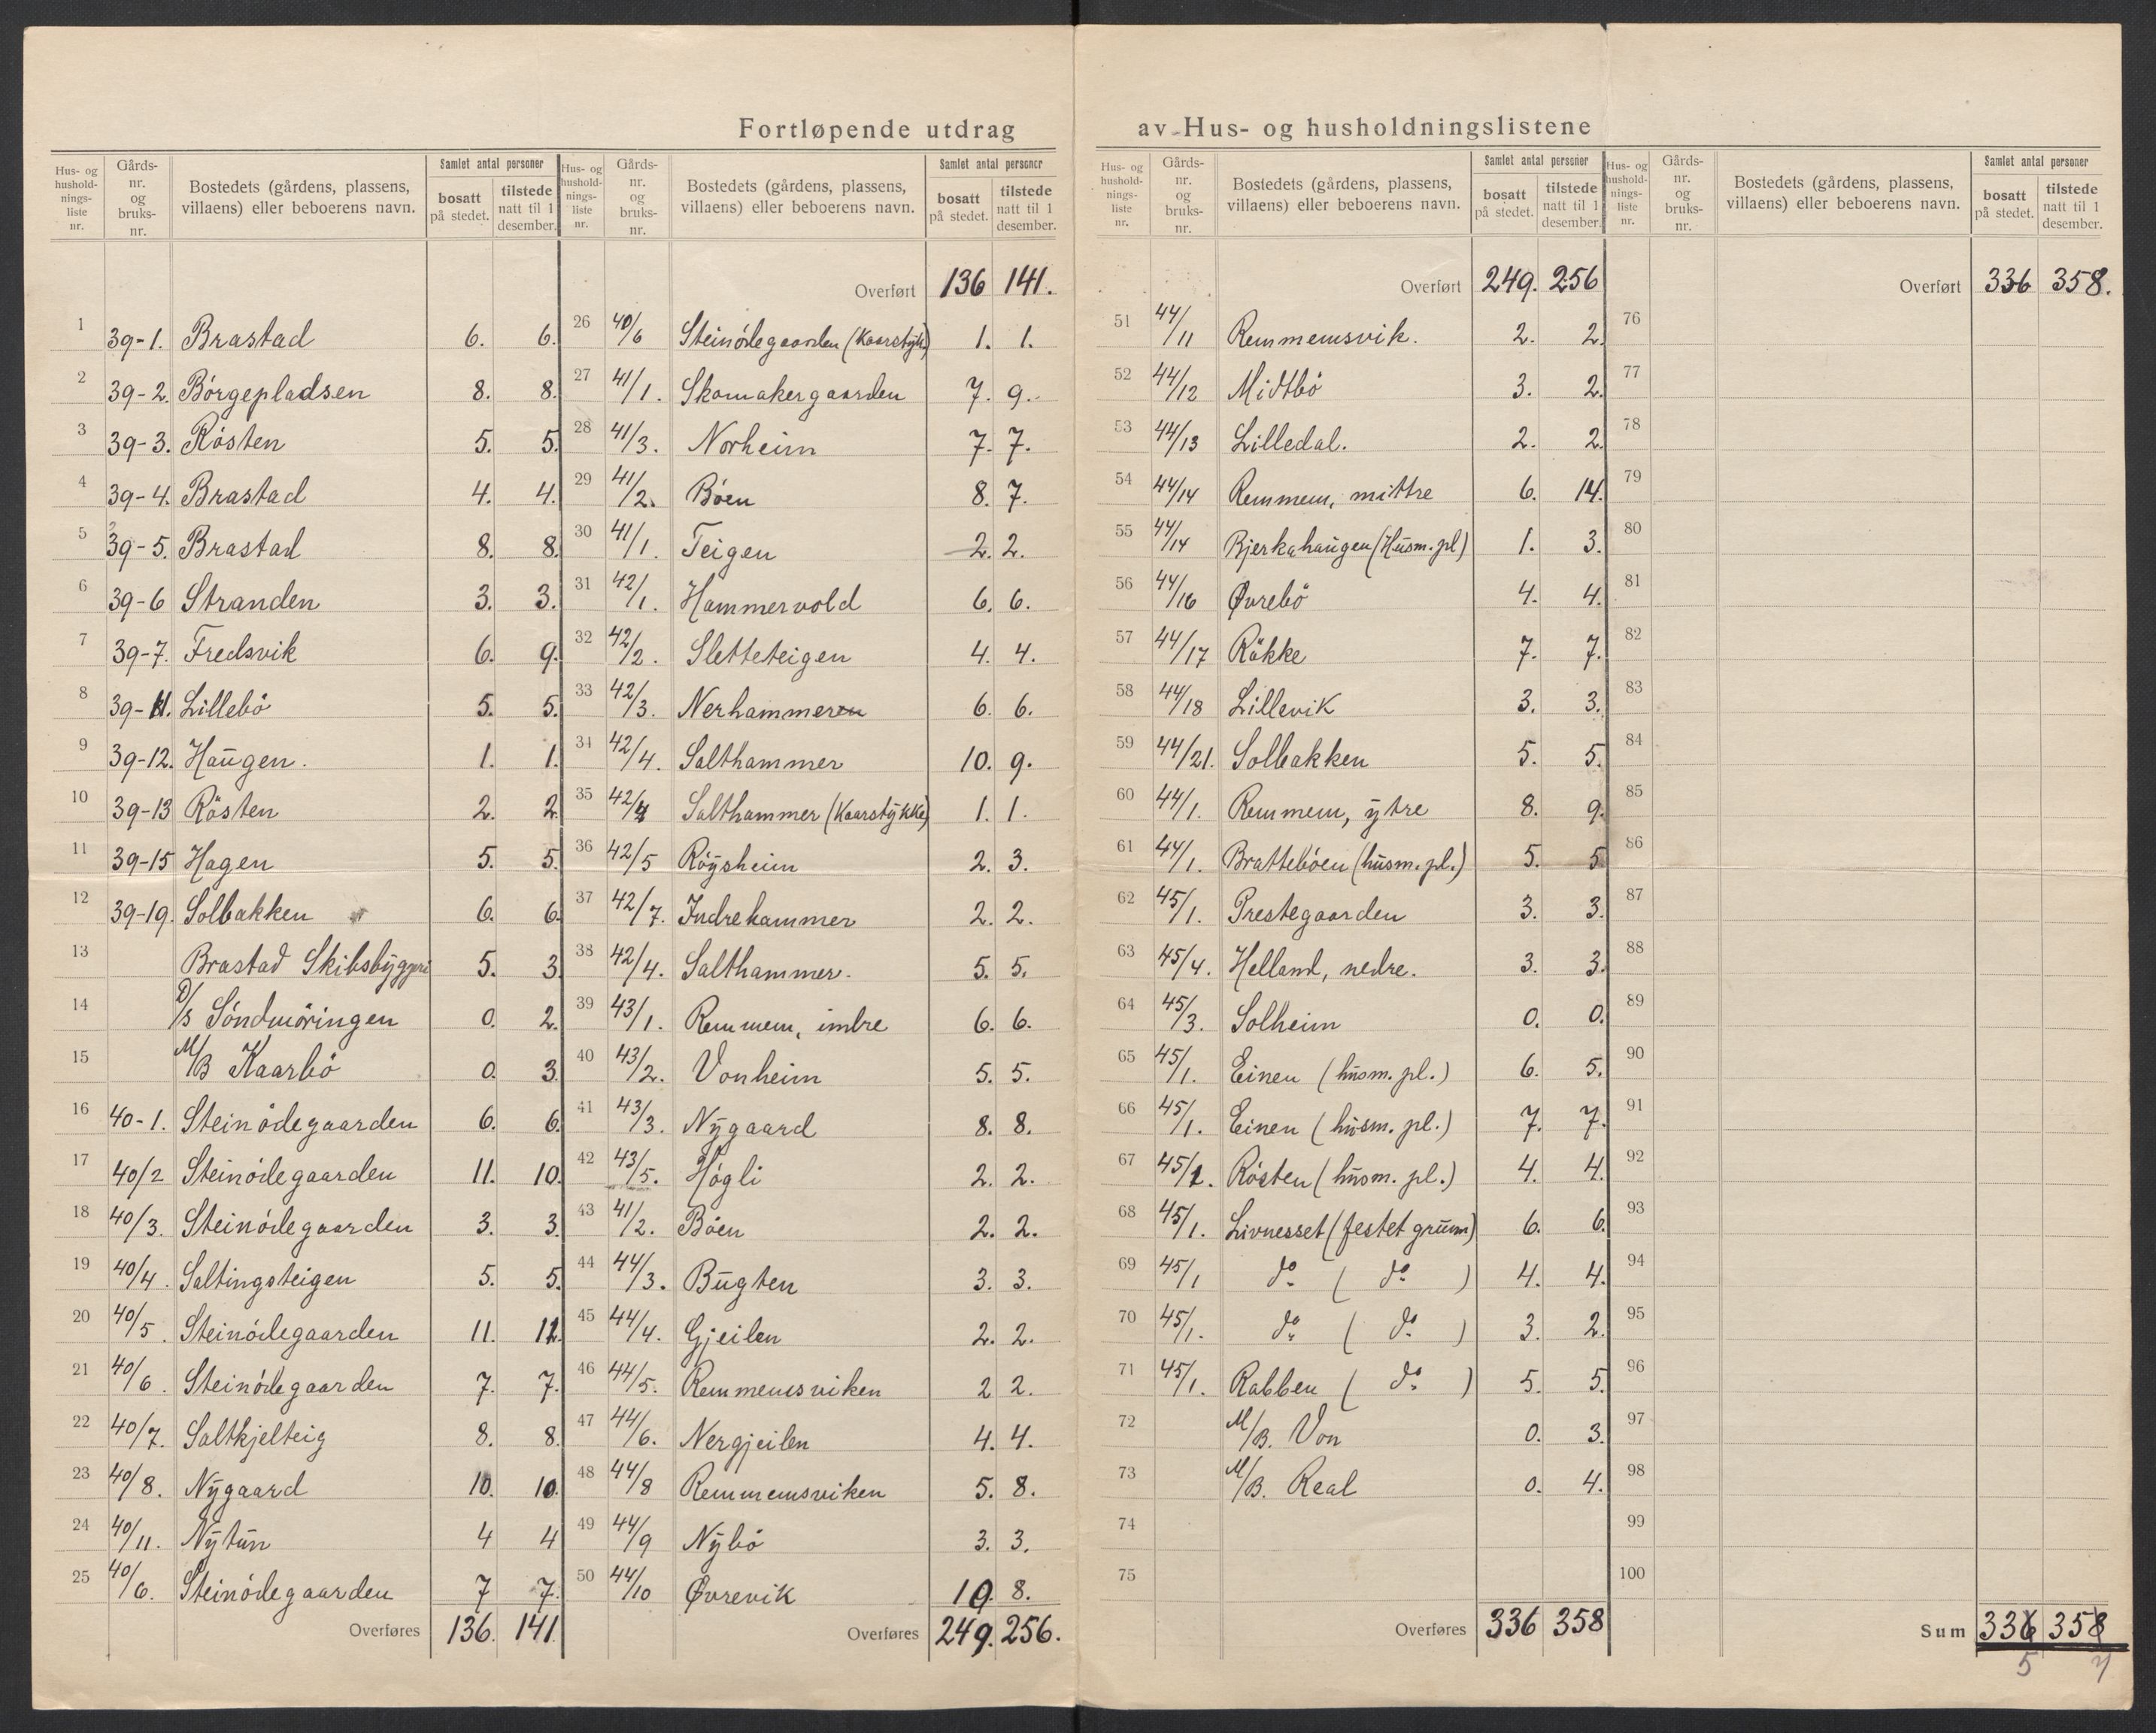 Fortløpende utdrag av Hus- og husholdningslistene
Hus- og hushold-nings-liste nr. Gårds-nr. og bruks-nr. Bostedets (gårdens, plassens, villaens) eller beboerens navn. Samlet antal personer bosatt på stedet. tilstede natt til 1 desember.
1 39-1. Brastad 6. 6.
2 39-2. Börgepladsen 8. 8.
3 39-3. Rösten 5. 5.
4 39-4. Brastad 4. 4.
5 39-5. Brastad 8. 8.
6 39-6 Stranden 3. 3.
7 39-7. Fredsvik 6. 9.
8 39-11. Lillebö 5. 5.
9 39-12. Haugen. 1. 1.
10 39-13 Rösten 2. 2.
11 39-15 Hagen 5. 5.
12 39-19. Solbakken 6. 6.
13 Brastad Skibsbyggeri 5. 3.
14 D/S Söndmöringen 0. 2.
15 M/B Kaarbö 0. 3.
16 40-1. Steinödegaarden 6. 6.
17 40/2 Steinödegaarden 11. 10.
18 40/3. Steinödegaarden 3. 3.
19 40/4. Saltingsteigen 5. 5.
20 40/5. Steinödegaarden 11. 12.
21 40/6. Steinödegaarden 7. 7.
22 40/7. Saltkjelteig 8. 8.
23 40/8. Nygaard 10. 10.
24 40/11. Nytun 4 4
25 40/6. Steinödegaarden 7 7.
Overføres 136. 141.
Hus- og hushold-nings-liste nr. Gårds-nr. og bruks-nr. Bostedets (gårdens, plassens, villaens) eller beboerens navn. Samlet antal personer bosatt på stedet. tilstede natt til 1 desember.
Overført 136 141.
26 40/6 Steinödegaarden (Kaarstykke) 1. 1.
27 41/1. Skomakergaarden 7. 9.
28 41/3. Norheim 7. 7.
29 41/2. Böen 8. 7.
30 41/1. Teigen 2. 2.
31 42/1. Hammervold 6. 6.
32 42/2. Sletteteigen 4. 4.
33 42/3. Nerhammeren 6. 6.
34 42/4. Salthammer 10. 9.
35 42/4 Salthammer (Kaarstykke) 1. 1.
36 42/5 Röysheim 2. 3.
37 42/7. Indrehammer 2. 2.
38 42/4. Salthammer. 5. 5.
39 43/1. Remmem, indre 6. 6.
40 43/2. Vonheim 5. 5.
41 43/3. Nygaard 8. 8.
42 43/5. Högli 2. 2.
43 41/2. Böen 2. 2.
44 44/3. Bugten 3. 3.
45 44/4. Gjeilen 2. 2.
46 44/5. Remmemsviken 2 2.
47 44/6. Nergjeilen 4. 4.
48 44/8 Remmemsviken 5. 8.
49 44/9 Nybö 3. 3.
50 44/10 Øvrevik 10. 8.
Overføres 249. 256.
Hus- og hushold-nings-liste nr. Gårds-nr. og bruks-nr. Bostedets (gårdens, plassens, villaens) eller beboerens navn. Samlet antal personer bosatt på stedet. tilstede natt til 1 desember.
Overført 249. 256
51 44/11 Remmemsvik. 2. 2.
52 44/12 Midtbö 3. 2.
53 44/13 Lilledal. 2. 2.
54 44/14 Remmem, mittre 6. 14.
55 44/14 Bjerkahaugen (Husm. pl) 1. 3.
56 44/16 Øvrebö 4. 4.
57 44/17 Räkke 7. 7.
58 44/18 Lillevik 3. 3.
59 44/21. Solbakken 5. 5.
60 44/1. Remmem, ytre 8. 9.
61 44/1. Bratteböen (husm. pl.) 5. 5
62 45/1. Prestegaarden 3. 3.
63 45/4. Helland, nedre. 3. 3.
64 45/3. Solheim 0. 0.
65 45/1. Einen (husm. pl.) 6. 5.
66 45/1. Einen (husm. pl.) 7. 7.
67 45/1. Rösten (husm. pl.) 4. 4.
68 45/1. Livnesset (festet grunn) 6. 6.
69 45/1 do (do) 4. 4.
70 45/1. do (do) 3. 2.
71 45/1. Rabben (do) 5. 5.
72 M/B. Von 0. 3.
73 M/B. Real 0. 4.
74
75
Overføres 336 358
Hus- og hushold-nings-liste nr. Gårds-nr. og bruks-nr. Bostedets (gårdens, plassens, villaens) eller beboerens navn. Samlet antal personer bosatt på stedet. tilstede natt til 1 desember.
Overført 336 358.
76
77
78
79
80
81
82
83
84
85
86
87
88
89
90
91
92
93
94
95
96
97
98
99
100
Sum 336 358
5 7